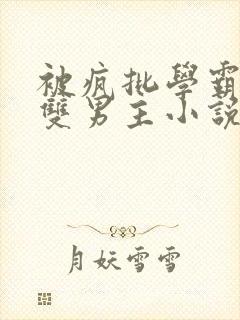 被疯批學霸
雙男主小說
月妖雪雪